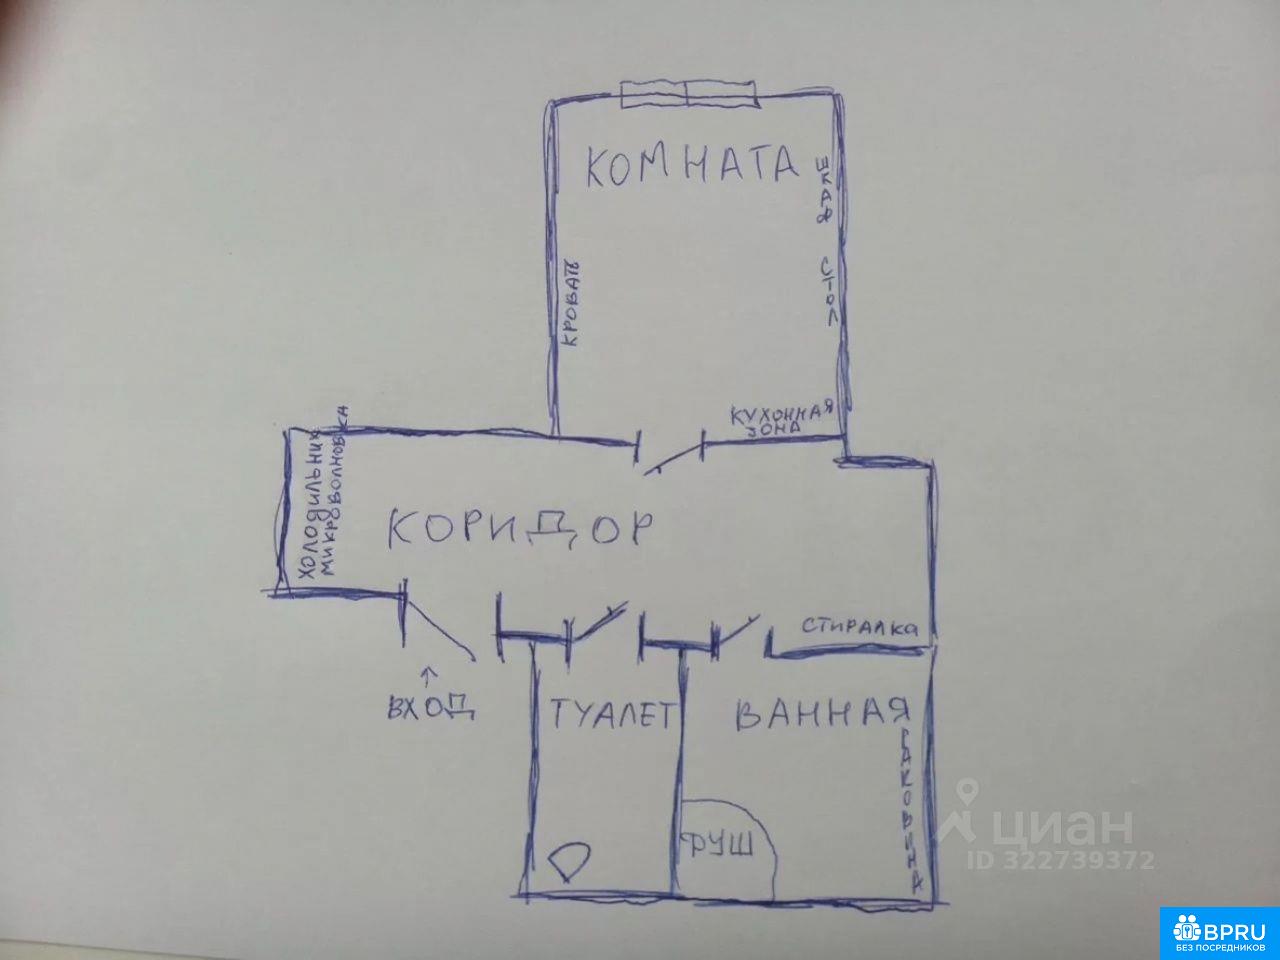 КОМНАТА
ШКАФ
СТОЛ
КРОВАТЬ
КУХОННАЯ
ЗОНА
ХОЛОДИЛЬНИК
МИКРОВОЛНОВКА
КОРИДОР
СТИРАЛКА
ВХОД
ТУАЛЕТ
ВАННАЯ
РАКОВИНА
ДУШ
циан
ID 322739372
BPRU
БЕЗ ПОСРЕДНИКОВ